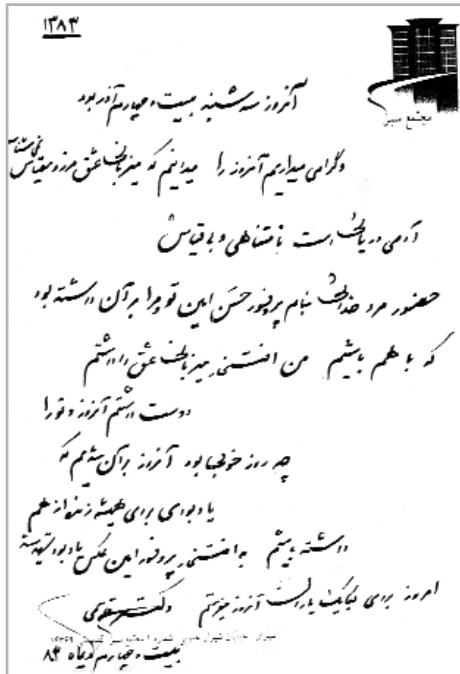 ۱۳۸۳
مجتمع سبز
آنروز سه شنبه بیست و چهارم آذر بود
و گرامی میداریم آنروز را میدانیم که میزبانی عشق مرز و مقیاس نمی شناسد
آدمی دریائی است نامتناهی و بی قیاس
حضور مرد خدائی بنام پرفسور حسن امین تو و مرا بر آن داشته بود
که با هم باشیم من افتخار میزبانی عشق را داشتم
دوست داشتم آنروز و تو را
چه روز خوبی بود آنروز بر آن شدیم که
یادبودی برای همیشه زنده از هم
داشته باشیم به افتخار پرفسور امین عکس یادبود
امروز برای یکایک یاران آنروز دکتر
تهران خیابان شیراز جنوبی
بیست و چهارم دیماه ۸۳